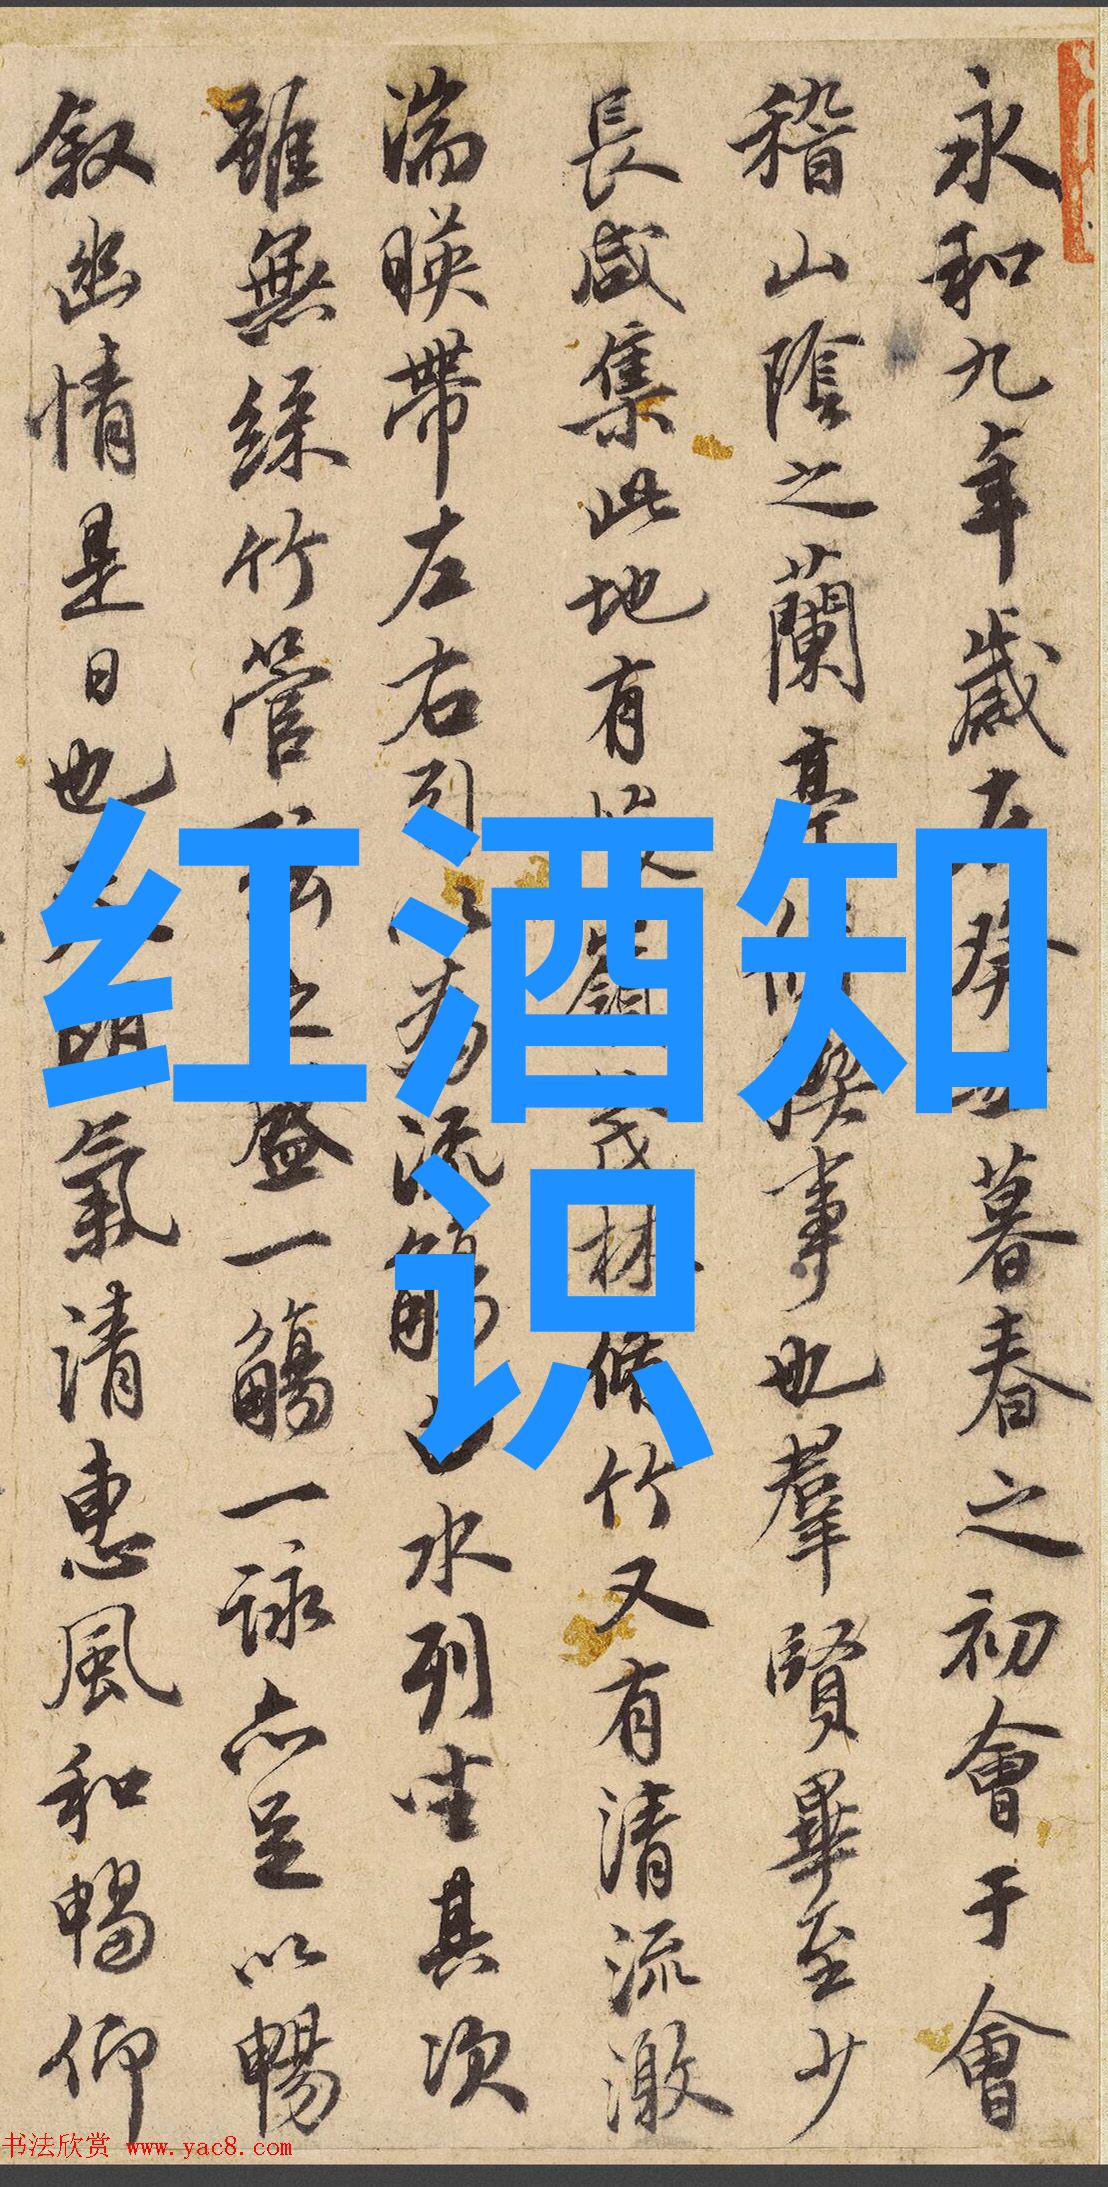 永和九年歲在癸丑暮春之初會于會
稽山陰之蘭亭脩禊事也羣賢畢至少
長咸集此地有峻領茂林脩竹又有清流激
湍暎帶左右引以為流觴曲水列坐其次
雖無絲竹管弦之盛一觴一詠亦足以暢
叙幽情是日也天朗氣清惠風和暢仰
红酒知
识
书法欣赏 www.yac8.com